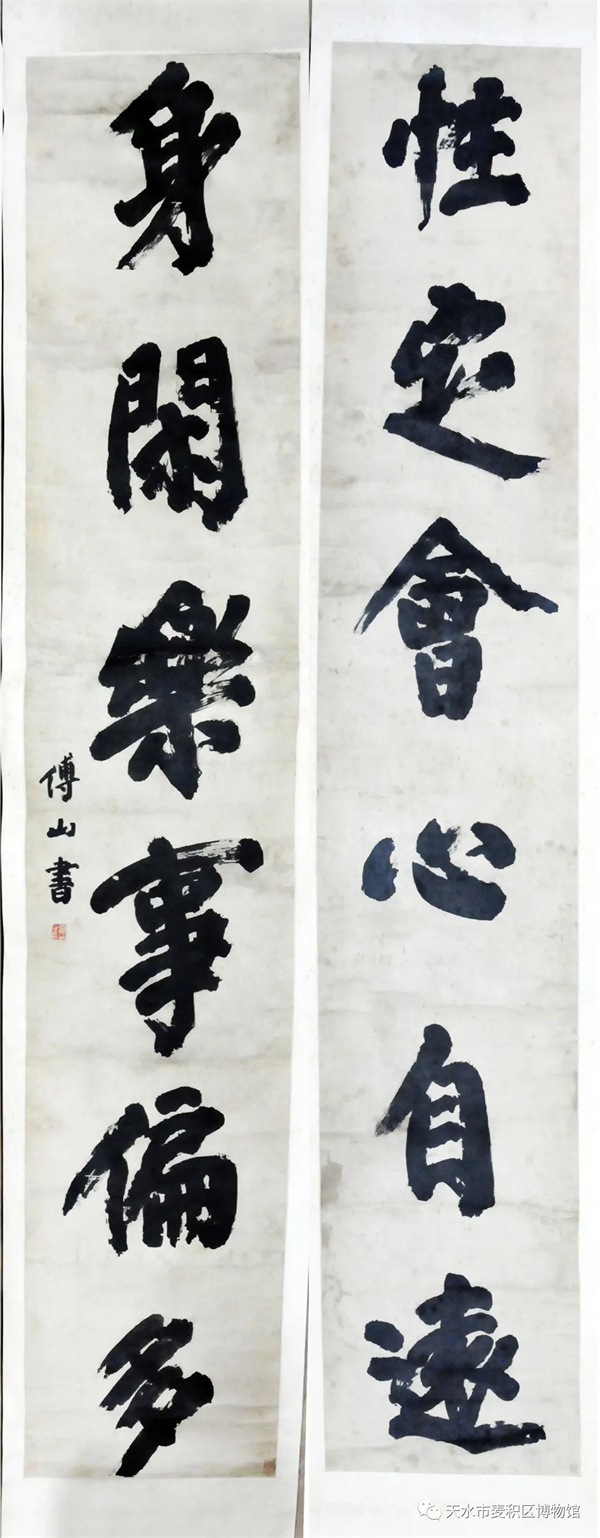 性定會心自遠
身閑樂事偏多
傅山書
天水市麦积区博物馆